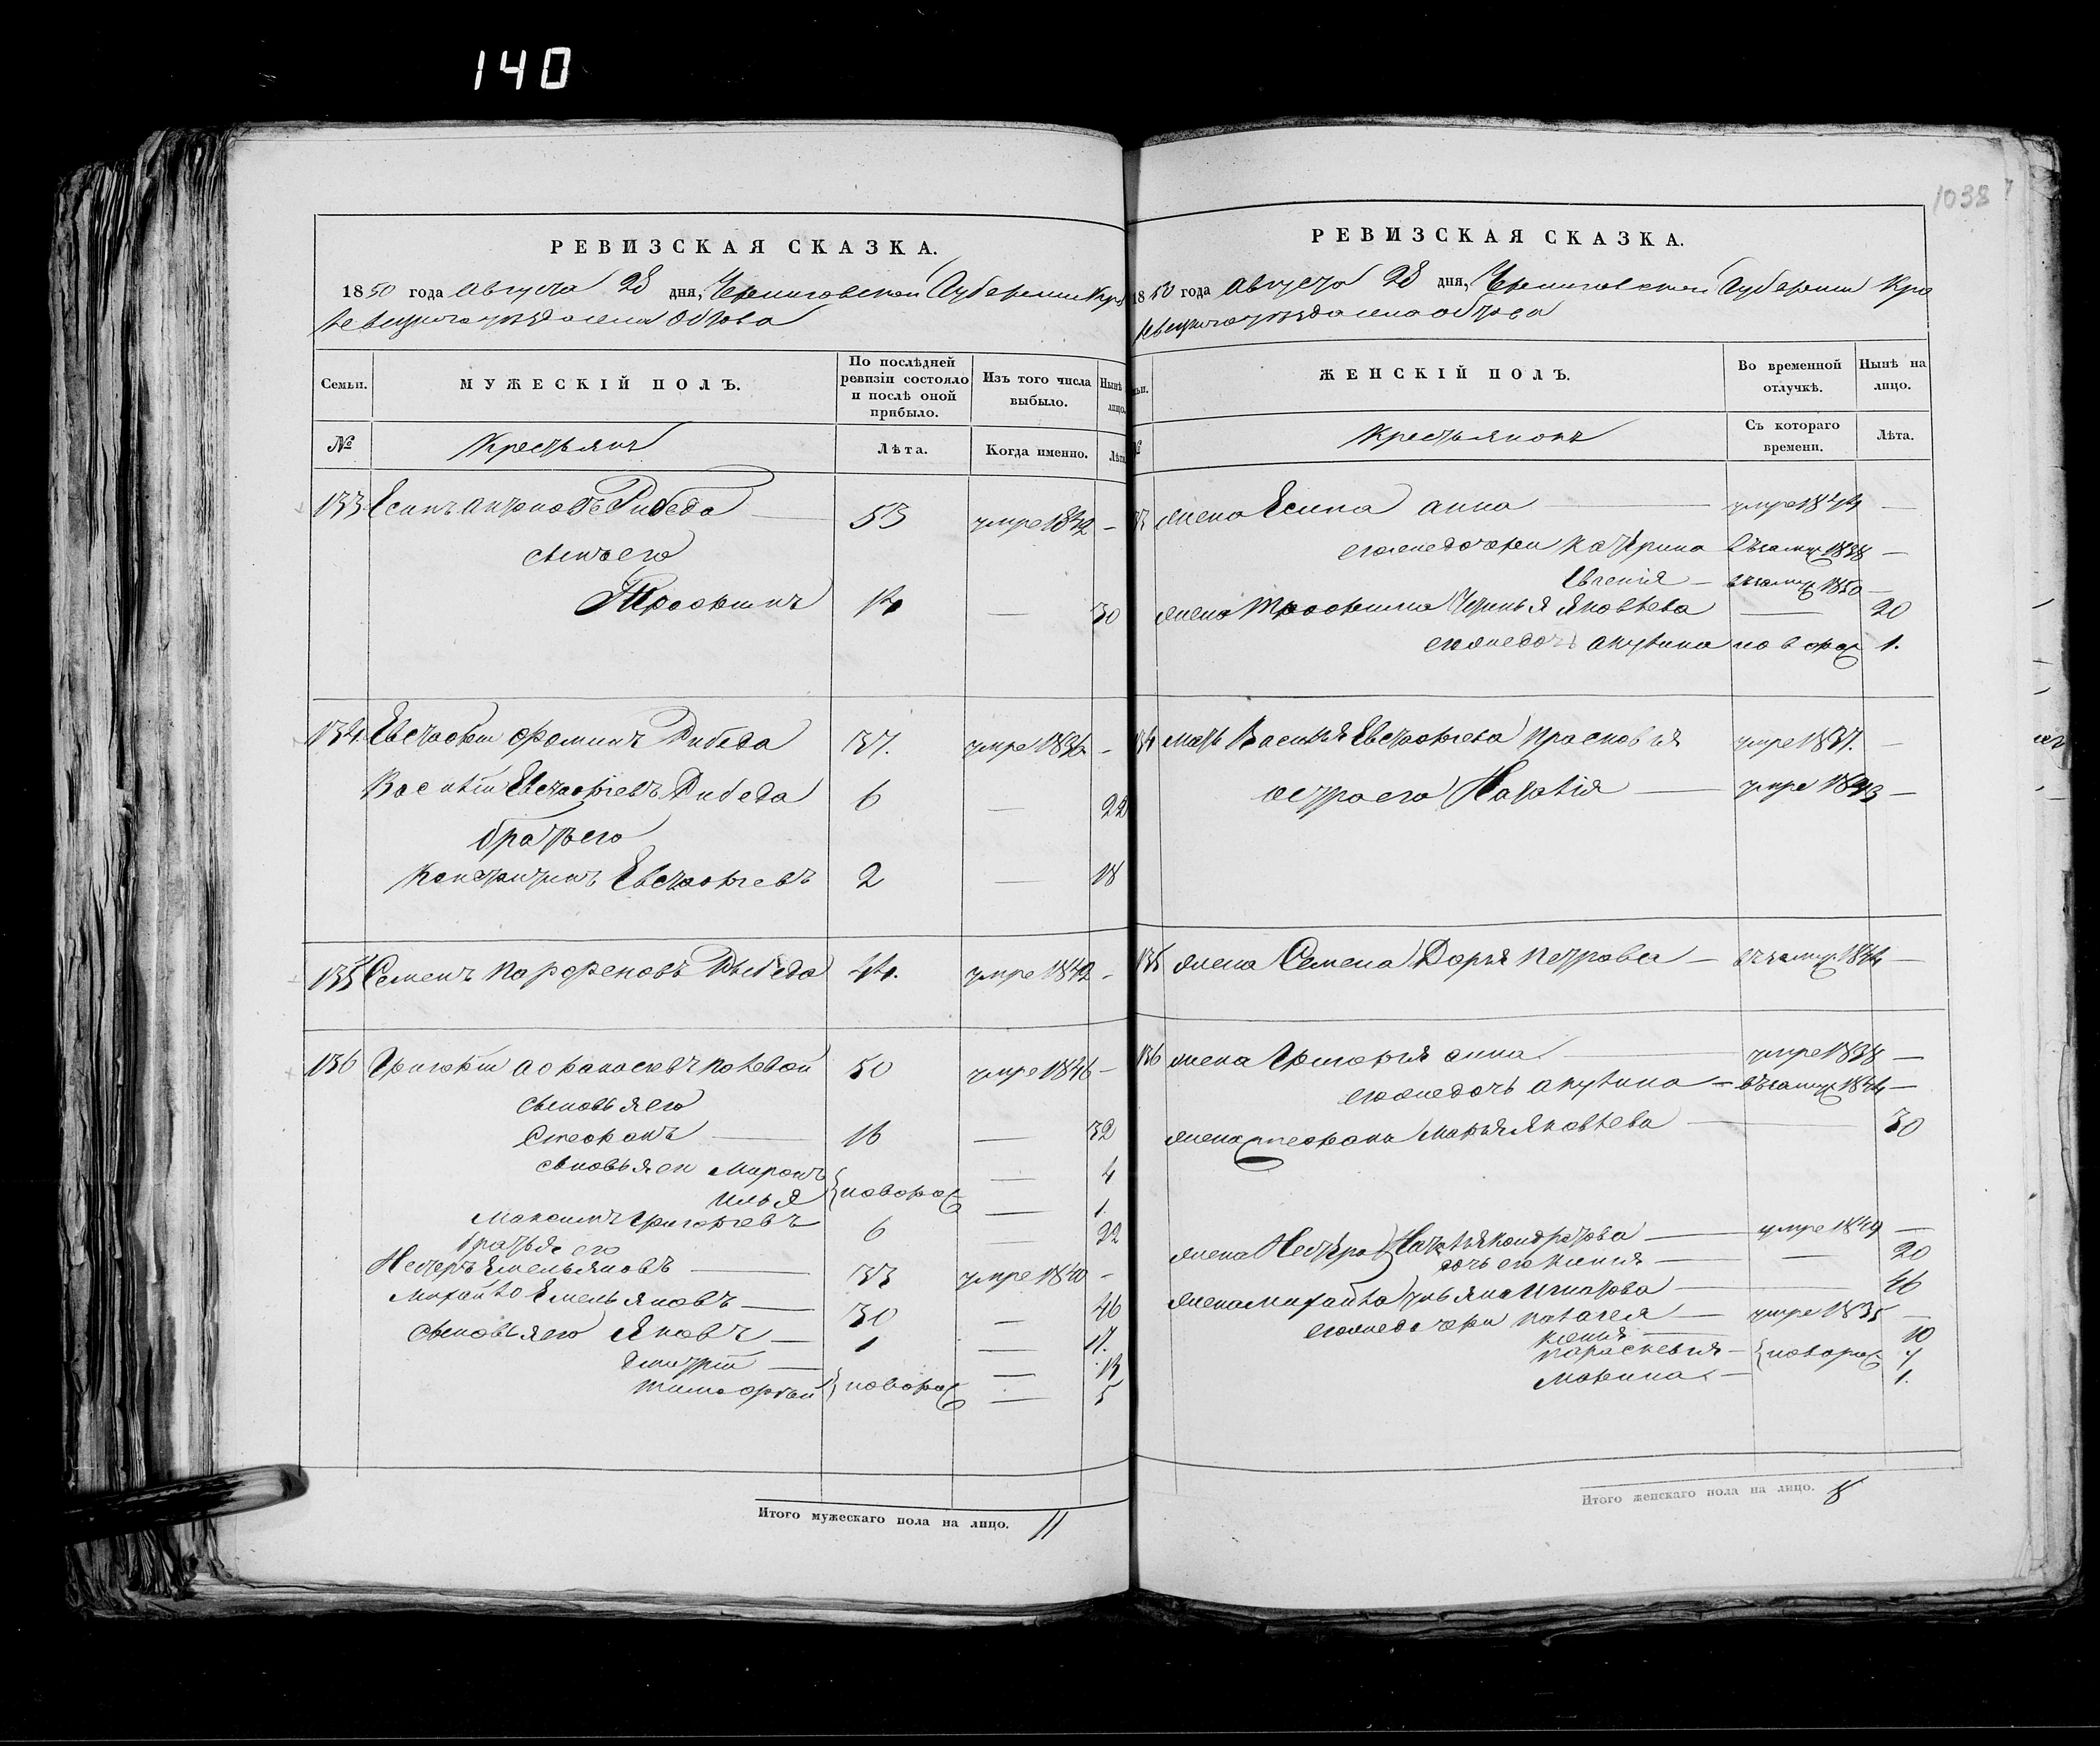 140
1038
РЕВИЗСКАЯ СКАЗКА.
1850 года Августа 28 дня, Черниговской Губернии Кро
левецкаго уѣзда села Обтова
Семьи.
МУЖЕСКІЙ ПОЛЪ.
По послѣдней ревизіи состояло и послѣ оной прибыло.
Изъ того числа выбыло.
Нынѣ лицо.
№
Крестьянъ
Лѣта.
Когда именно.
Лѣта
133 Есипъ Антоновъ Рибеда 53 умре 1842 -
сынъ его
Трофимъ 14 — 30
134 Евстафій Фоминъ Рибеда 37. умре 1834 -
Василій Евстафіевъ Рибеда 6 — 22
братъ его
Константинъ Евстафіевъ 2 — 18
135 Семенъ Парфеновъ Рибеда 44. умре 1840 -
136 Григорій Афанасіевъ Полевой 50 умре 1846 -
сыновья его
Стефанъ 16 — 32
сыновья его Миронъ — 4
Илья } новорож — 1
Максимъ Григорьевъ 6 — 22
братья его
Несторъ Емельяновъ — 33 умре 1840 -
Михайло Емельяновъ — 30 — 46
сыновья его Яковъ — 1 — 17.
Дмитрій — — 13
Тимофей } новорож — 5
Итого мужескаго пола на лицо. 11
РЕВИЗСКАЯ СКАЗКА.
1850 года Августа 28 дня, Черниговской Губерніи Кро
левецкаго уѣзда села Обтова
ЖЕНСКІЙ ПОЛЪ.
Во временной отлучкѣ.
Нынѣ на лицо.
Крестьянокъ
Съ котораго времени.
Лѣта.
жена Есипа Анна — умре 1844 —
его же дочери Катерина въ замуж 1838 —
Евгенія — въ замуж 1850 —
жена Трофима Яковлева — 20
его же дочь Акулина новорож 1.
134 мать Василія Евстафіева Прасковья умре 1837. —
сестра его Наталія — умре 1843 —
135 жена Семена Дарья Петрова — въ замуж 1844 —
136 жена Григорія Анна умре 1838 —
его же дочь Акулина — въ замуж 1844 —
жена Стефана Марья Яковлева — 30
жена Нестора Наталья Кондратова — умре 1849 —
дочь его Ксенія — — 20
жена Михайла Ульяна Игнатова — — 46
его же дочери Пелагея — умре 1835 —
Ксенія — 10
Параскевия — } новорож 4
Марина — 1.
Итого женскаго пола на лицо. 8